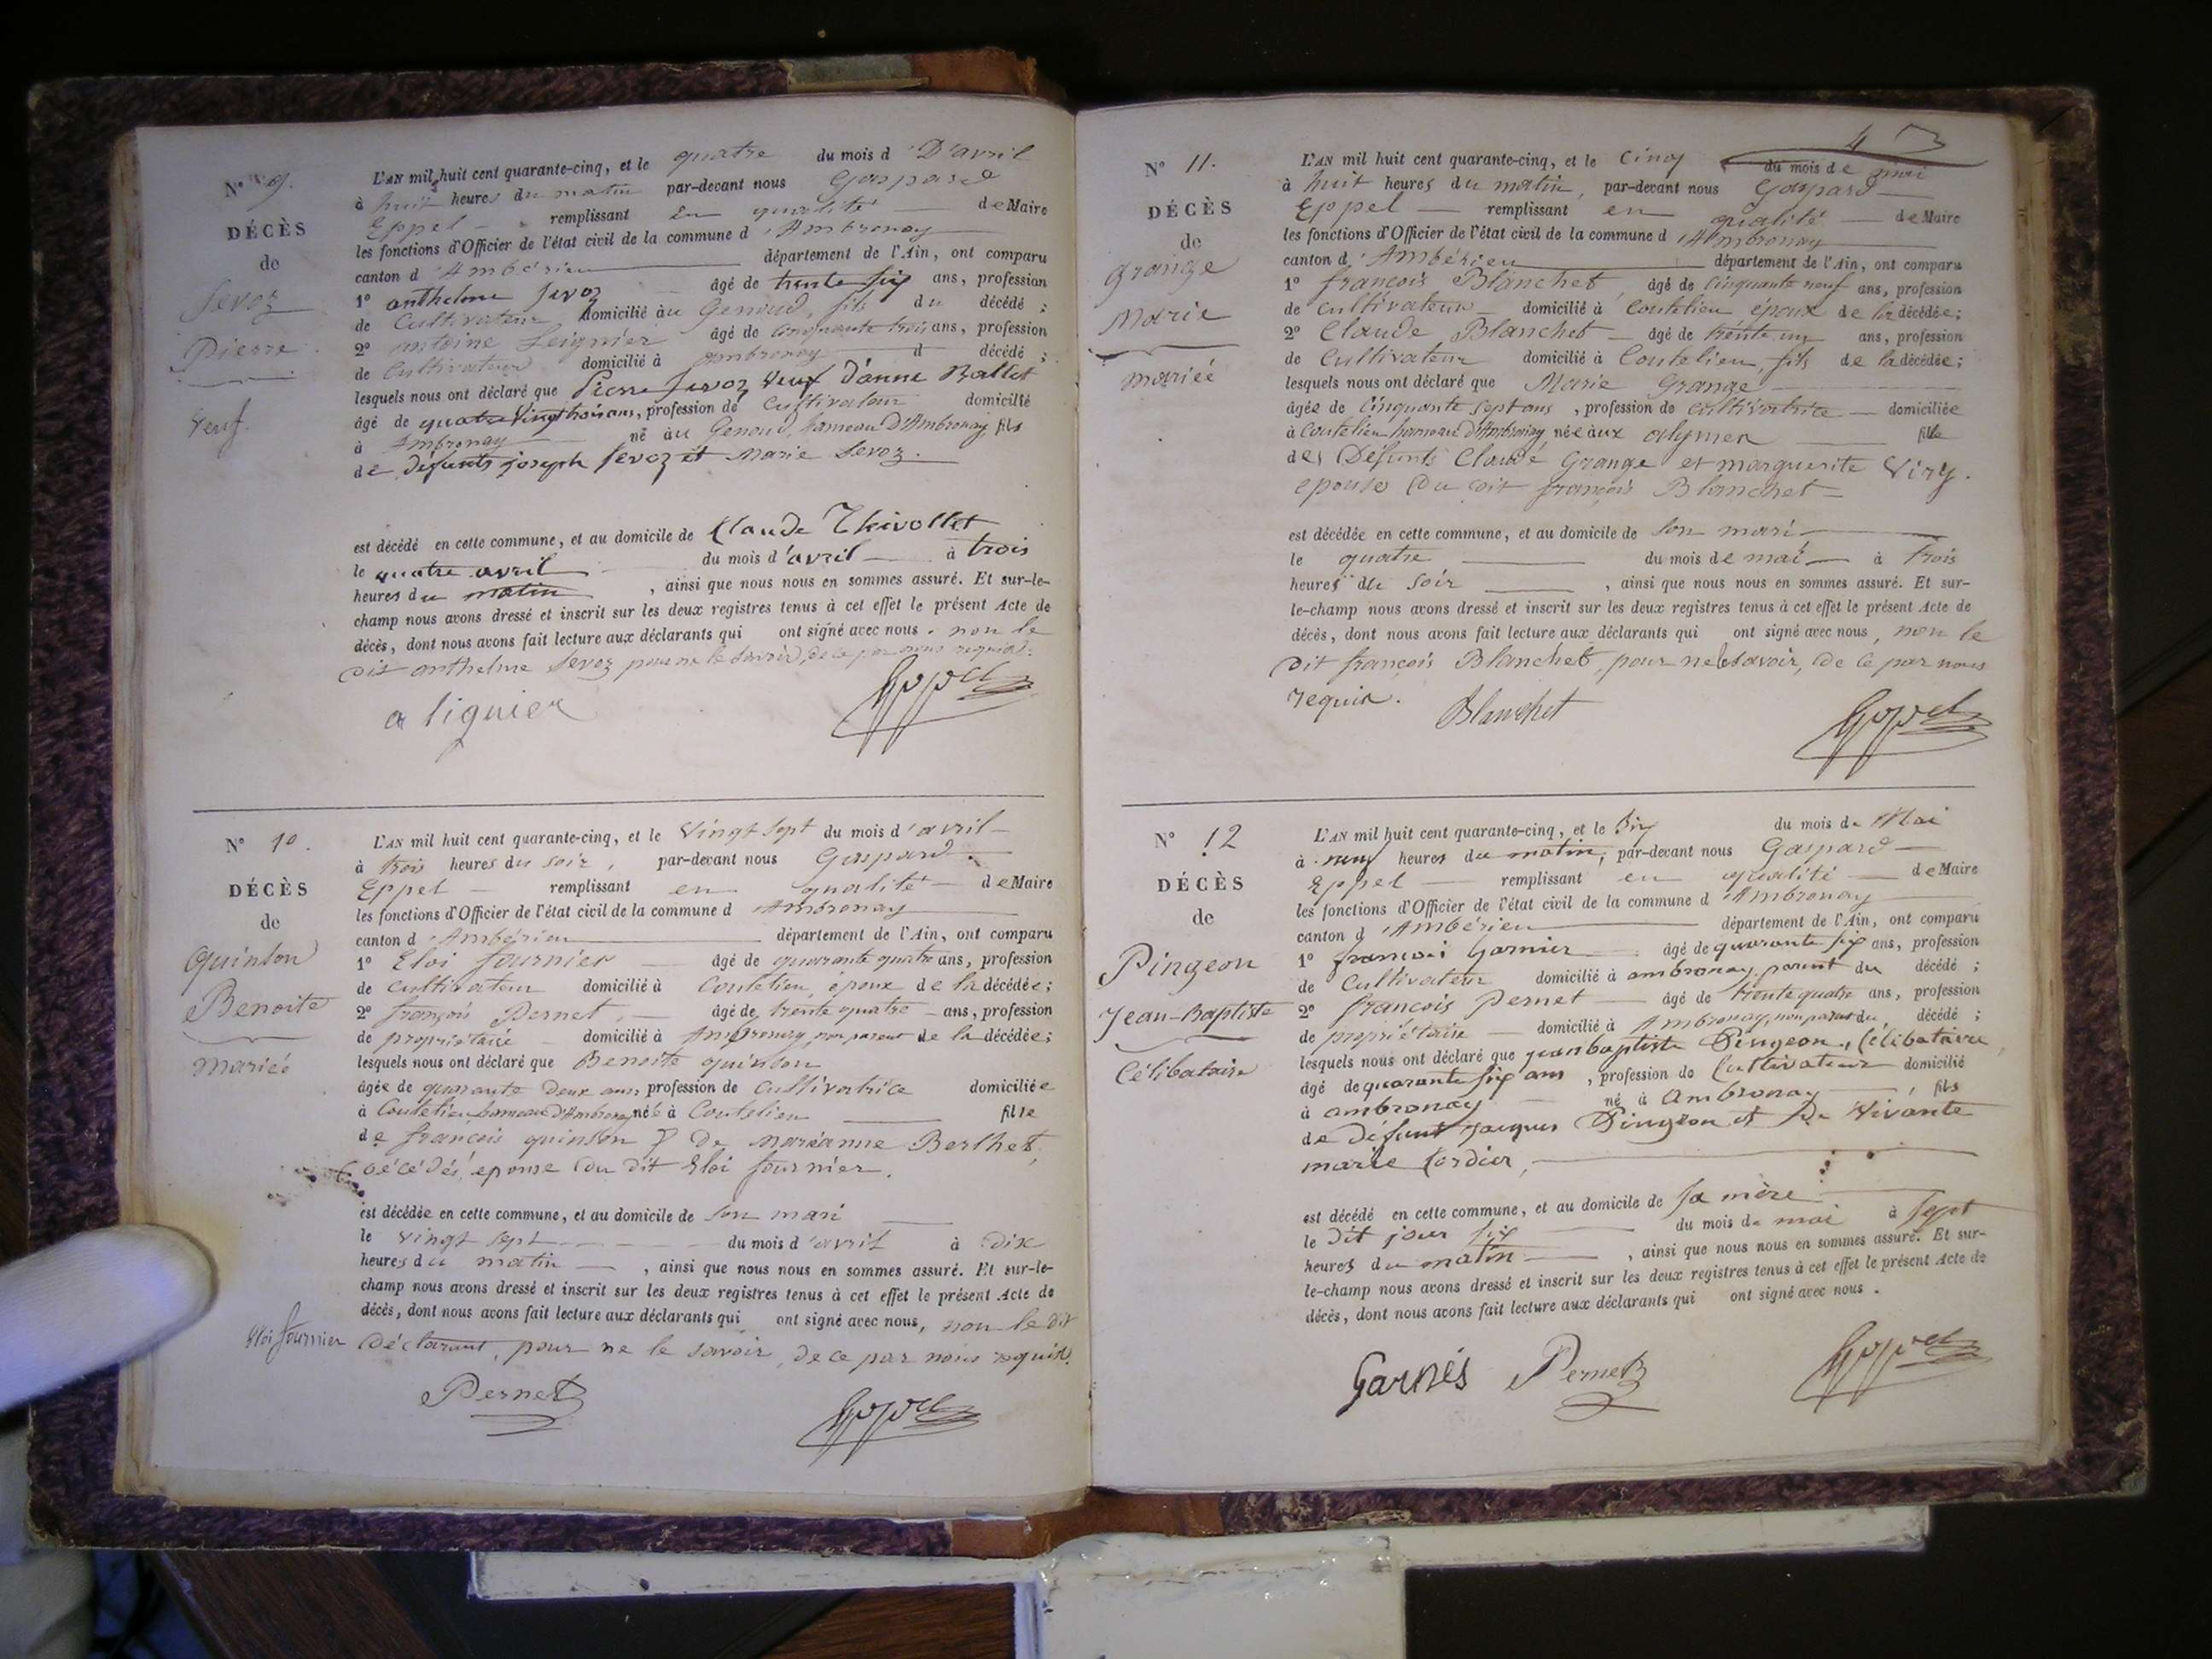 N° 9.
DÉCÈS
de
Sevoz
Pierre
Veuf.
L'AN mil huit cent quarante-cinq, et le quatre du mois d'avril
à huit heures du matin par-devant nous Gaspard
Eppel remplissant en qualité de Maire
les fonctions d'Officier de l'état civil de la commune d'Ambronay
canton d'Ambérieu département de l'Ain, ont comparu
1° anthelme Sevoz âgé de trente six ans, profession
de Cultivateur domicilié au Genoud, fils du décédé ;
2° antoine Leignier âgé de cinquante trois ans, profession
de Cultivateur domicilié à ambronay d décédé ;
lesquels nous ont déclaré que Pierre Sevoz Veuf d'anne Ballet
âgé de quatre Vingt trois ans, profession de Cultivateur domicilié
à Ambronay né au Genoud, hameau D'Ambronay, fils
de défunts joseph Sevoz et Marie Sevoz.
est décédé en cette commune, et au domicile de Claude Thivollet
le quatre avril du mois d'avril à trois
heures du matin, ainsi que nous nous en sommes assuré. Et sur-le-
champ nous avons dressé et inscrit sur les deux registres tenus à cet effet le présent Acte de
décès, dont nous avons fait lecture aux déclarants qui ont signé avec nous. non le
Dit anthelme Sevoz pour ne le savoir, de ce par nous requis.
a liguier Eppel
N° 10.
DÉCÈS
de
Quinson
Benoite
Mariée
L'AN mil huit cent quarante-cinq, et le Vingt Sept du mois d'avril
à trois heures du soir, par-devant nous Gaspard
Eppel remplissant en qualité de Maire
les fonctions d'Officier de l'état civil de la commune d'Ambronay
canton d'Ambérieu département de l'Ain, ont comparu
1° Eloi fournier âgé de quarante quatre ans, profession
de Cultivateur domicilié à Coutelieu, époux de la décédée ;
2° françois Pernet, âgé de trente quatre ans, profession
de propriétaire domicilié à Ambronay, non parent de la décédée ;
lesquels nous ont déclaré que Benoite quinson
âgée de quarante Deux ans profession de Cultivatrice domiciliée
à Coutelieu hameau d'Ambronay née à Coutelieu fille
de françois quinson & De Marianne Berthet,
Décédés, epouse du dit Eloi fournier.
est décédée en cette commune, et au domicile de Son mari
le vingt sept du mois d'avril à Dix
heures du matin, ainsi que nous nous en sommes assuré. Et sur-le-
champ nous avons dressé et inscrit sur les deux registres tenus à cet effet le présent Acte de
décès, dont nous avons fait lecture aux déclarants qui ont signé avec nous, non le dit
Eloi fournier Déclarant, pour ne le savoir, de ce par nous requis.
Pernet Eppel
43
N° 11.
DÉCÈS
de
Grange
Marie
mariée
L'AN mil huit cent quarante-cinq, et le Cinq du mois de mai
à huit heures du matin, par-devant nous Gaspard
Eppel remplissant en qualité de Maire
les fonctions d'Officier de l'état civil de la commune d'Ambronay
canton d'Ambérieu département de l'Ain, ont comparu
1° françois Blanchet, âgé de Cinquante neuf ans, profession
de Cultivateur domicilié à Coutelieu époux de la décédée ;
2° Claude Blanchet âgé de trente un ans, profession
de Cultivateur domicilié à Coutelieu, fils de la décédée ;
lesquels nous ont déclaré que Marie Grange
âgée de Cinquante Sept ans, profession de Cultivatrice domiciliée
à Coutelieu hameau d'Ambronay née aux alymes fille
des Défunts Claude Grange et marguerite Viry.
epouse Du dit françois Blanchet
est décédée en cette commune, et au domicile de Son mari
le quatre du mois de mai à trois
heures du soir, ainsi que nous nous en sommes assuré. Et sur-
le-champ nous avons dressé et inscrit sur les deux registres tenus à cet effet le présent Acte de
décès, dont nous avons fait lecture aux déclarants qui ont signé avec nous, non le
Dit françois Blanchet, pour ne le savoir, de ce par nous
requis.
Blanchet Eppel
N° 12
DÉCÈS
de
Pingeon
Jean-Baptiste
Célibataire
L'AN mil huit cent quarante-cinq, et le Six du mois de Mai
à neuf heures du matin, par-devant nous Gaspard
Eppel remplissant en qualité de Maire
les fonctions d'Officier de l'état civil de la commune d'Ambronay
canton d'Ambérieu département de l'Ain, ont comparu
1° françois Garnier âgé de quarante six ans, profession
de Cultivateur domicilié à ambronay, parent du décédé ;
2° françois Pernet âgé de trente quatre ans, profession
de propriétaire domicilié à Ambronay, non parent du décédé ;
lesquels nous ont déclaré que jean baptiste Pingeon, Célibataire
âgé de quarante six ans, profession de Cultivateur domicilié
à ambronay né à Ambronay, fils
de Défunt Jacques Pingeon et De Vivante
marie Cordier,
est décédé en cette commune, et au domicile de Sa mère
le Dit jour six du mois de mai à Sept
heures du matin, ainsi que nous nous en sommes assuré. Et sur-
le-champ nous avons dressé et inscrit sur les deux registres tenus à cet effet le présent Acte de
décès, dont nous avons fait lecture aux déclarants qui ont signé avec nous.
Garnés Pernet Eppel